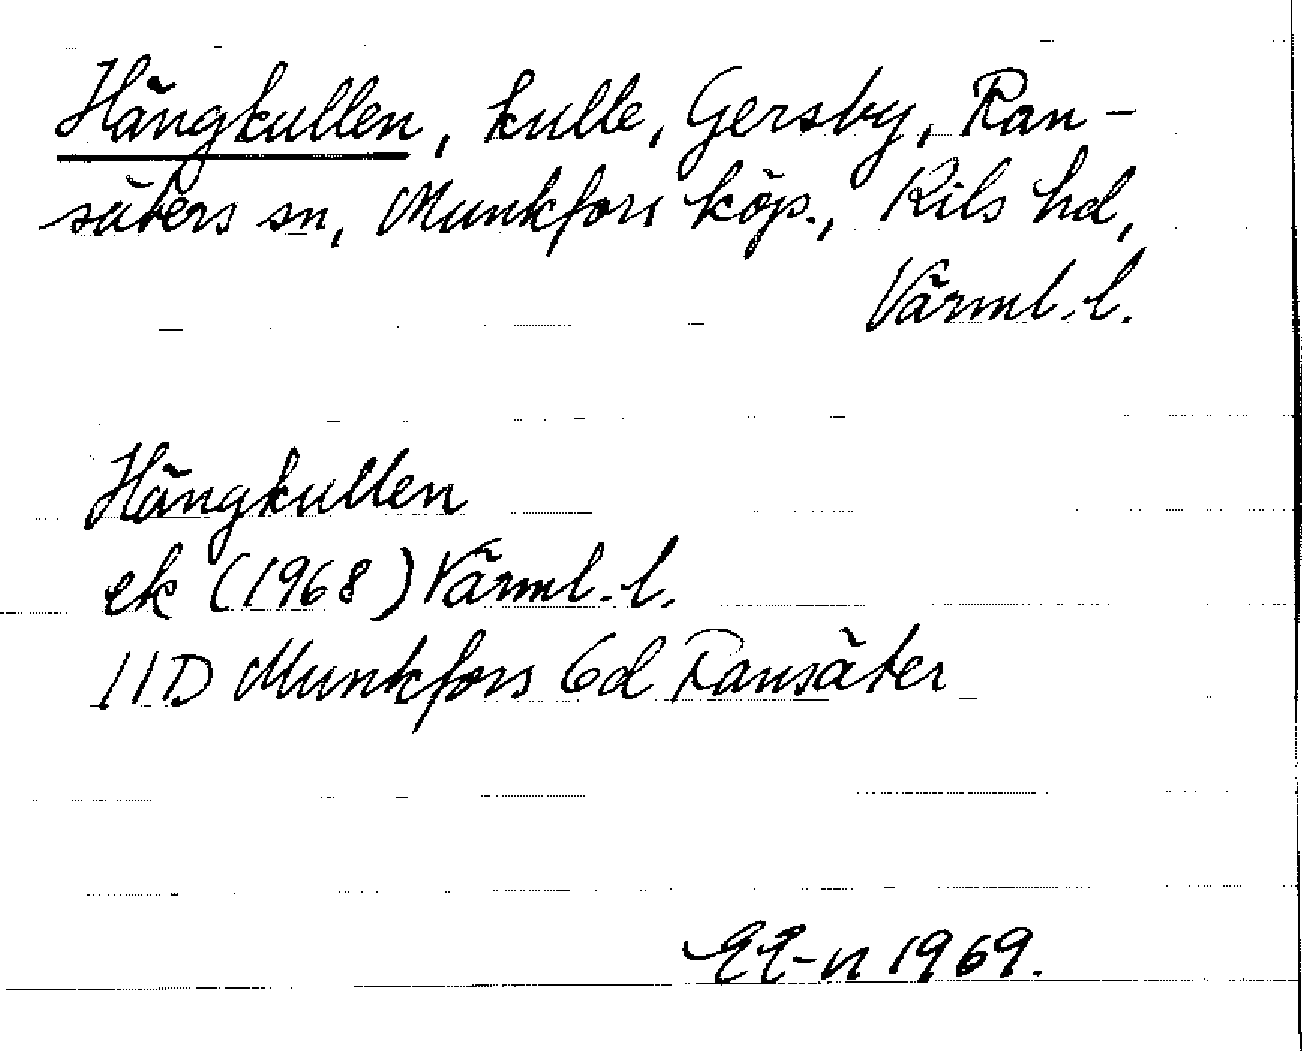 Hängkullen, kulle, Gersby, Ran-
säters sn, Munkfors köp., Kils hd,
Värml. l.
Hängkullen
ek (1968) Värml. l.
11D Munkfors 6d Ransäter
EE-n 1969.